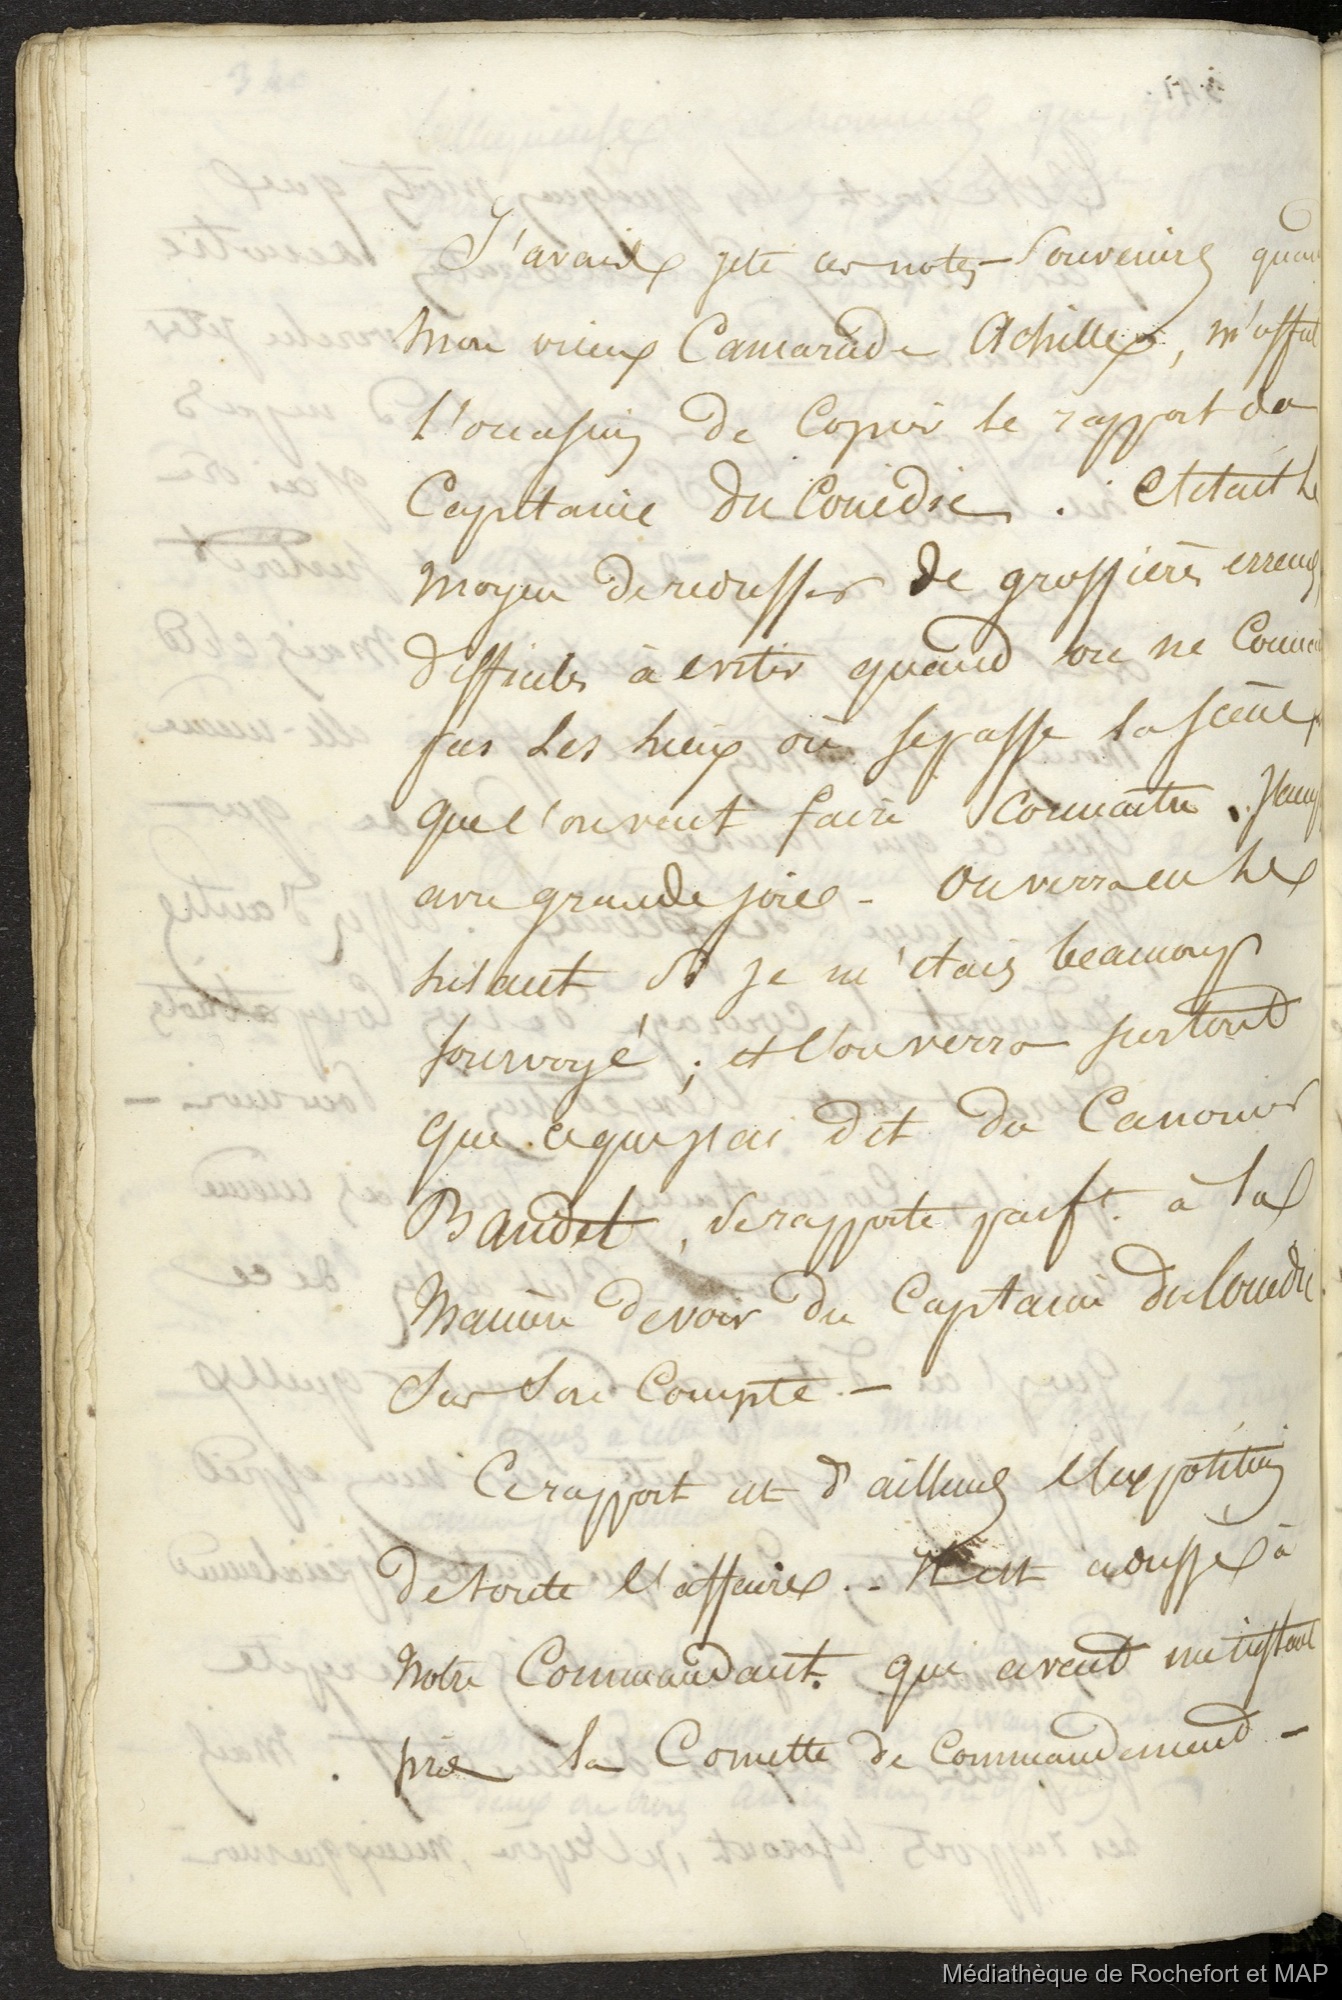 J'avais jeté ces notes-Souvenirs quan
mon vieux Camarade Achille, m'offrit
l'occasion de Copier le rapport du
Capitaine du Couëdic. C'etait le
moyen de redresser de grossières erreurs,
difficiles à eviter quand on ne Connait
pas les lieux où se passe la scène
que l'on veut faire Connaitre.
avec grande joie - On verra en le
lisant si je m'étais beaucoup
fourvoyé; et l'on verra surtout
que ce que j'ai dit du Canonier
Baudet, se rapporte parft. à la
Manière de voir du Capitaine du Couëdic
Sur Son Compte. -
Ce rapport est d'ailleurs l'exposition
de toute l'affaire. - Il est adressé à
Notre Commandant. qui avant un instant
pris la Cornette de Commandement -
Médiathèque de Rochefort et MAP